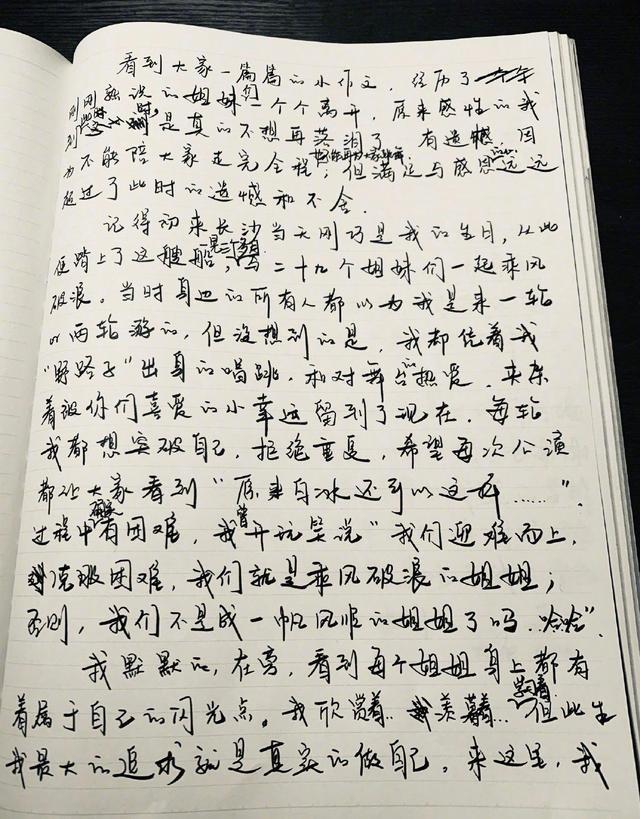 看到大家一篇篇的小作文，经历了
刚刚熟识的姐妹们一个个离开，原来感性的我
到此时，是真的不想再落泪了。有遗憾，因
为不能陪大家走完全程，但满足与感恩的心远远
超过了此时的遗憾和不舍.
记得初来长沙当天刚巧是我的生日，从此
便踏上了这艘船，与二十九个姐妹们一起乘风
破浪。当时身边的所有人都以为我是来一轮
or两轮游的，但没想到的是，我却凭着我
"野路子"出身的唱跳、和对舞台的热爱、夹杂
着被你们喜爱的小幸运留到了现在，每轮
我都想突破自己，拒绝重复，希望每次公演
都让大家看到"原来白冰还可以这样……".
过程中有困难，我曾开玩笑说"我们迎难而上，
克服困难，我们就是乘风破浪的姐姐；
否则，我们不是成一帆风顺的姐姐了吗..哈哈".
我默默的，在旁，看到每个姐姐身上都有
着属于自己的闪光点。我欣赏着..羡慕着..学习着..但此生
我最大的追求就是真实的做自己。来这里，我